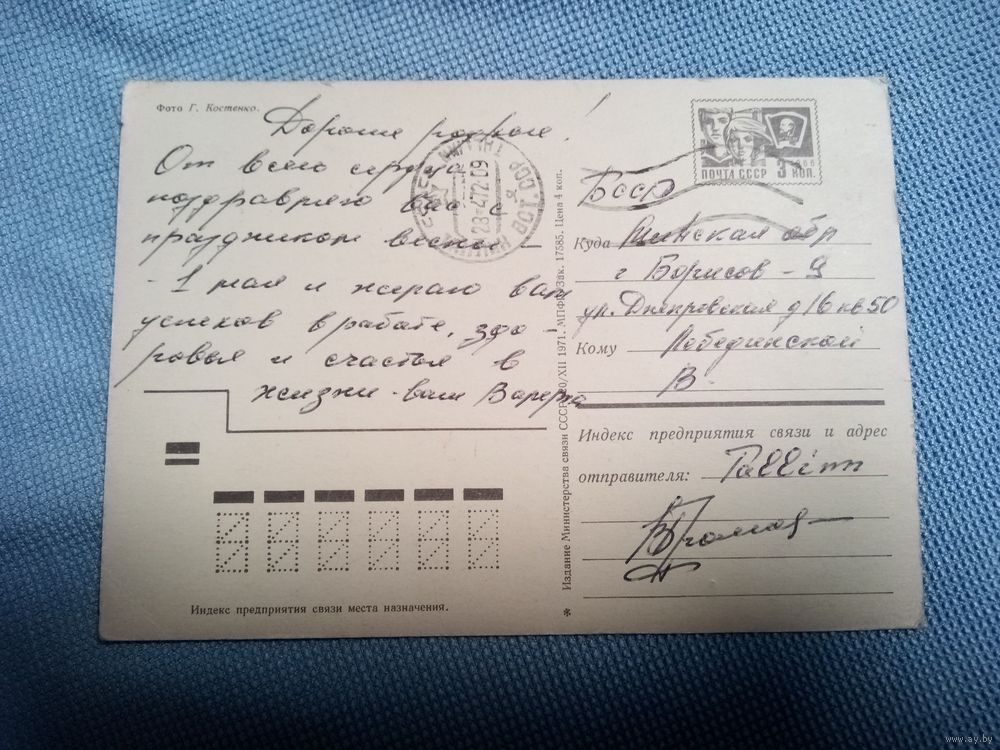 Фото Г. Костенко.
Дорогие родные!
От всего сердца
поздравляю вас с
праздником весны —
- 1 мая и желаю вам
успехов в работе, здо
ровья и счастья в
жизни - ваш Валера
Индекс предприятия связи места назначения.
28-4 72-09
Издание Министерства связи СССР. 20/XII 1971. МПФГ. Зак. 17585. Цена 4 коп.
ПОЧТА СССР
1966
3 КОП.
БССР
Куда Минская обл
г Борисов - 9
ул. Днепровская д 16 кв 50
Кому
В.
Индекс предприятия связи и адрес
отправителя: Tallinn
www.ay.by